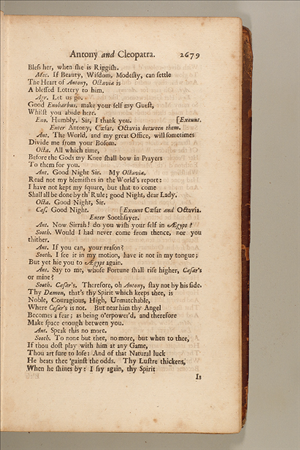 Antony and Cleopatra. 2679
Bless her, when she is Riggish.
Mec. If Beauty, Wisdom, Modesty, can settle
The Heart of Antony, Octavia is
A blessed Lottery to him.
Agr. Let us go.
Good Enobarbus, make your self my Guest,
Whilst you abide here.
Eno. Humbly, Sir, I thank you. [Exeunt.
Enter Antony, Cæsar, Octavia between them.
Ant. The World, and my great Office, will sometimes
Divide me from your Bosom.
Octa. All which time,
Before the Gods my Knee shall bow in Prayers
To them for you.
Ant. Good Night Sir. My Octavia,
Read not my blemishes in the World's report:
I have not kept my square, but that to come
Shall all be done by th' Rule; good Night, dear Lady.
Octa. Good Night, Sir.
Cæs. Good Night. [Exeunt Cæsar and Octavia.
Enter Soothsayer.
Ant. Now Sirrah! do you wish your self in Ægypt?
Sooth. Would I had never come from thence, nor you
thither.
Ant. If you can, your reason?
Sooth. I see it in my motion, have it not in my tongue;
But yet hie you to Ægypt again.
Ant. Say to me, whose Fortune shall rise higher, Cæsar's
or mine?
Sooth. Cæsar's. Therefore, oh Antony, stay not by his side.
Thy Demon, that's thy Spirit which keeps thee, is
Noble, Couragious, High, Unmatchable,
Where Cæsar's is not. But near him thy Angel
Becomes a fear; as being o'erpower'd, and therefore
Make space enough between you.
Ant. Speak this no more.
Sooth. To none but thee, no more, but when to thee,
If thou dost play with him at any Game,
Thou art sure to lose: And of that Natural luck
He beats thee 'gainst the odds. Thy Lustre thickens,
When he shines by: I say again, thy Spirit
Is